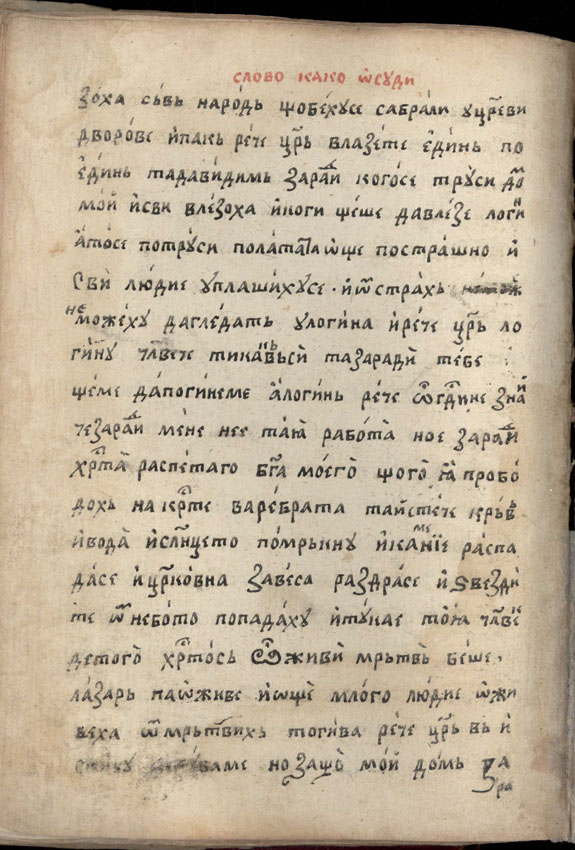 слово како ѡсуди
зоха съвь народь щобехусе сабрали уцр҃еви
дворове ѝпакь рече цр҃ь влазете едѝнь по
едѝнь тадавидимь заради когосе труси до
мой ѝсви влезоха ѝкоги щеше давлезе логи
атосе потруси полатаⷮа ѡще пострашно ѝ
свѝ людие уплашихусе · ѝѿстрахь
неможеху дагледать улогина ѝрече цр҃ь ло
гину чл҃вече тикаⷤвьсѝ тазаради тебе
щеме дапогинеме алогинь рече ѡгд҃ине знай
чезаради мене нее таꙗ работа ное заради
хрⷭта распетаго бг҃а моего щого ꙗ пробо
дохь на крⷭте варебрата таистече крьвь
ѝвода ѝслн҃цето помрькну ѝкамение распа
дасе ѝцр҃ковна завеса раздрасе ѝ ѕвезди
те ѿнебото попадаху ѝтукае тоꙗ чл҃ве
детого хрⷭтось ѡживѝ мрьтвь беше ·
лазарь паѡживе ѝѡще млого людие ѡжи
веха ѿмрьтвихь тогива рече цр҃ь въ ѝ
ваме но защо мой домь за
ра